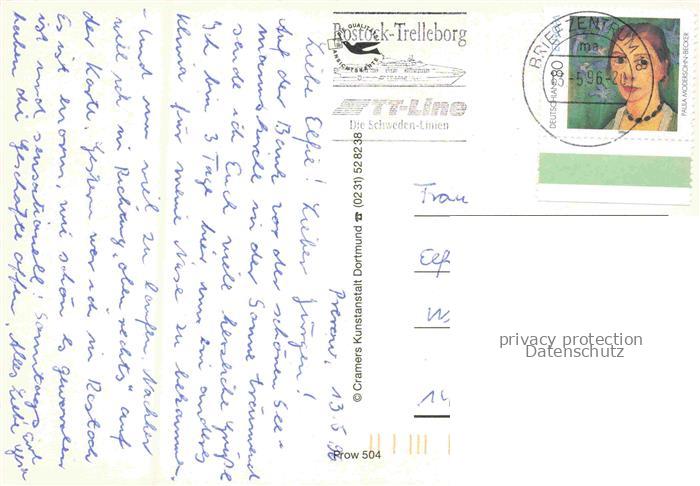 Rostock-Trelleborg
QUALITÄTS
ANSICHTSKARTE
TT-Line
Die Schweden-Linien
BRIEFZENTRUM
ma
-5.96-20
DEUTSCHLAND
80
PAULA MODERSOHN-BECKER
Prerow, 13.5.96
Liebe Elfie! Lieber Jürgen!
Auf der Bank vor der schönen See-
mannskirche in der Sonne träumend
sende ich Euch viele herzliche Grüße
Ich bin 3 Tage hier um ein anderes
Klima für meine Nase zu bekommen
- und um viel zu laufen. Nachher
will ich in Richtung "oben rechts" auf
der Karte. Gestern war ich in Rostock
Es ist enorm, wie schön es geworden
ist und sensationell! Sonntags
haben die Geschäfte offen. Alles Liebe
© Cramers Kunstanstalt Dortmund ☎ (0231) 528238
Prow 504
Frau
Elf
14
privacy protection
Datenschutz